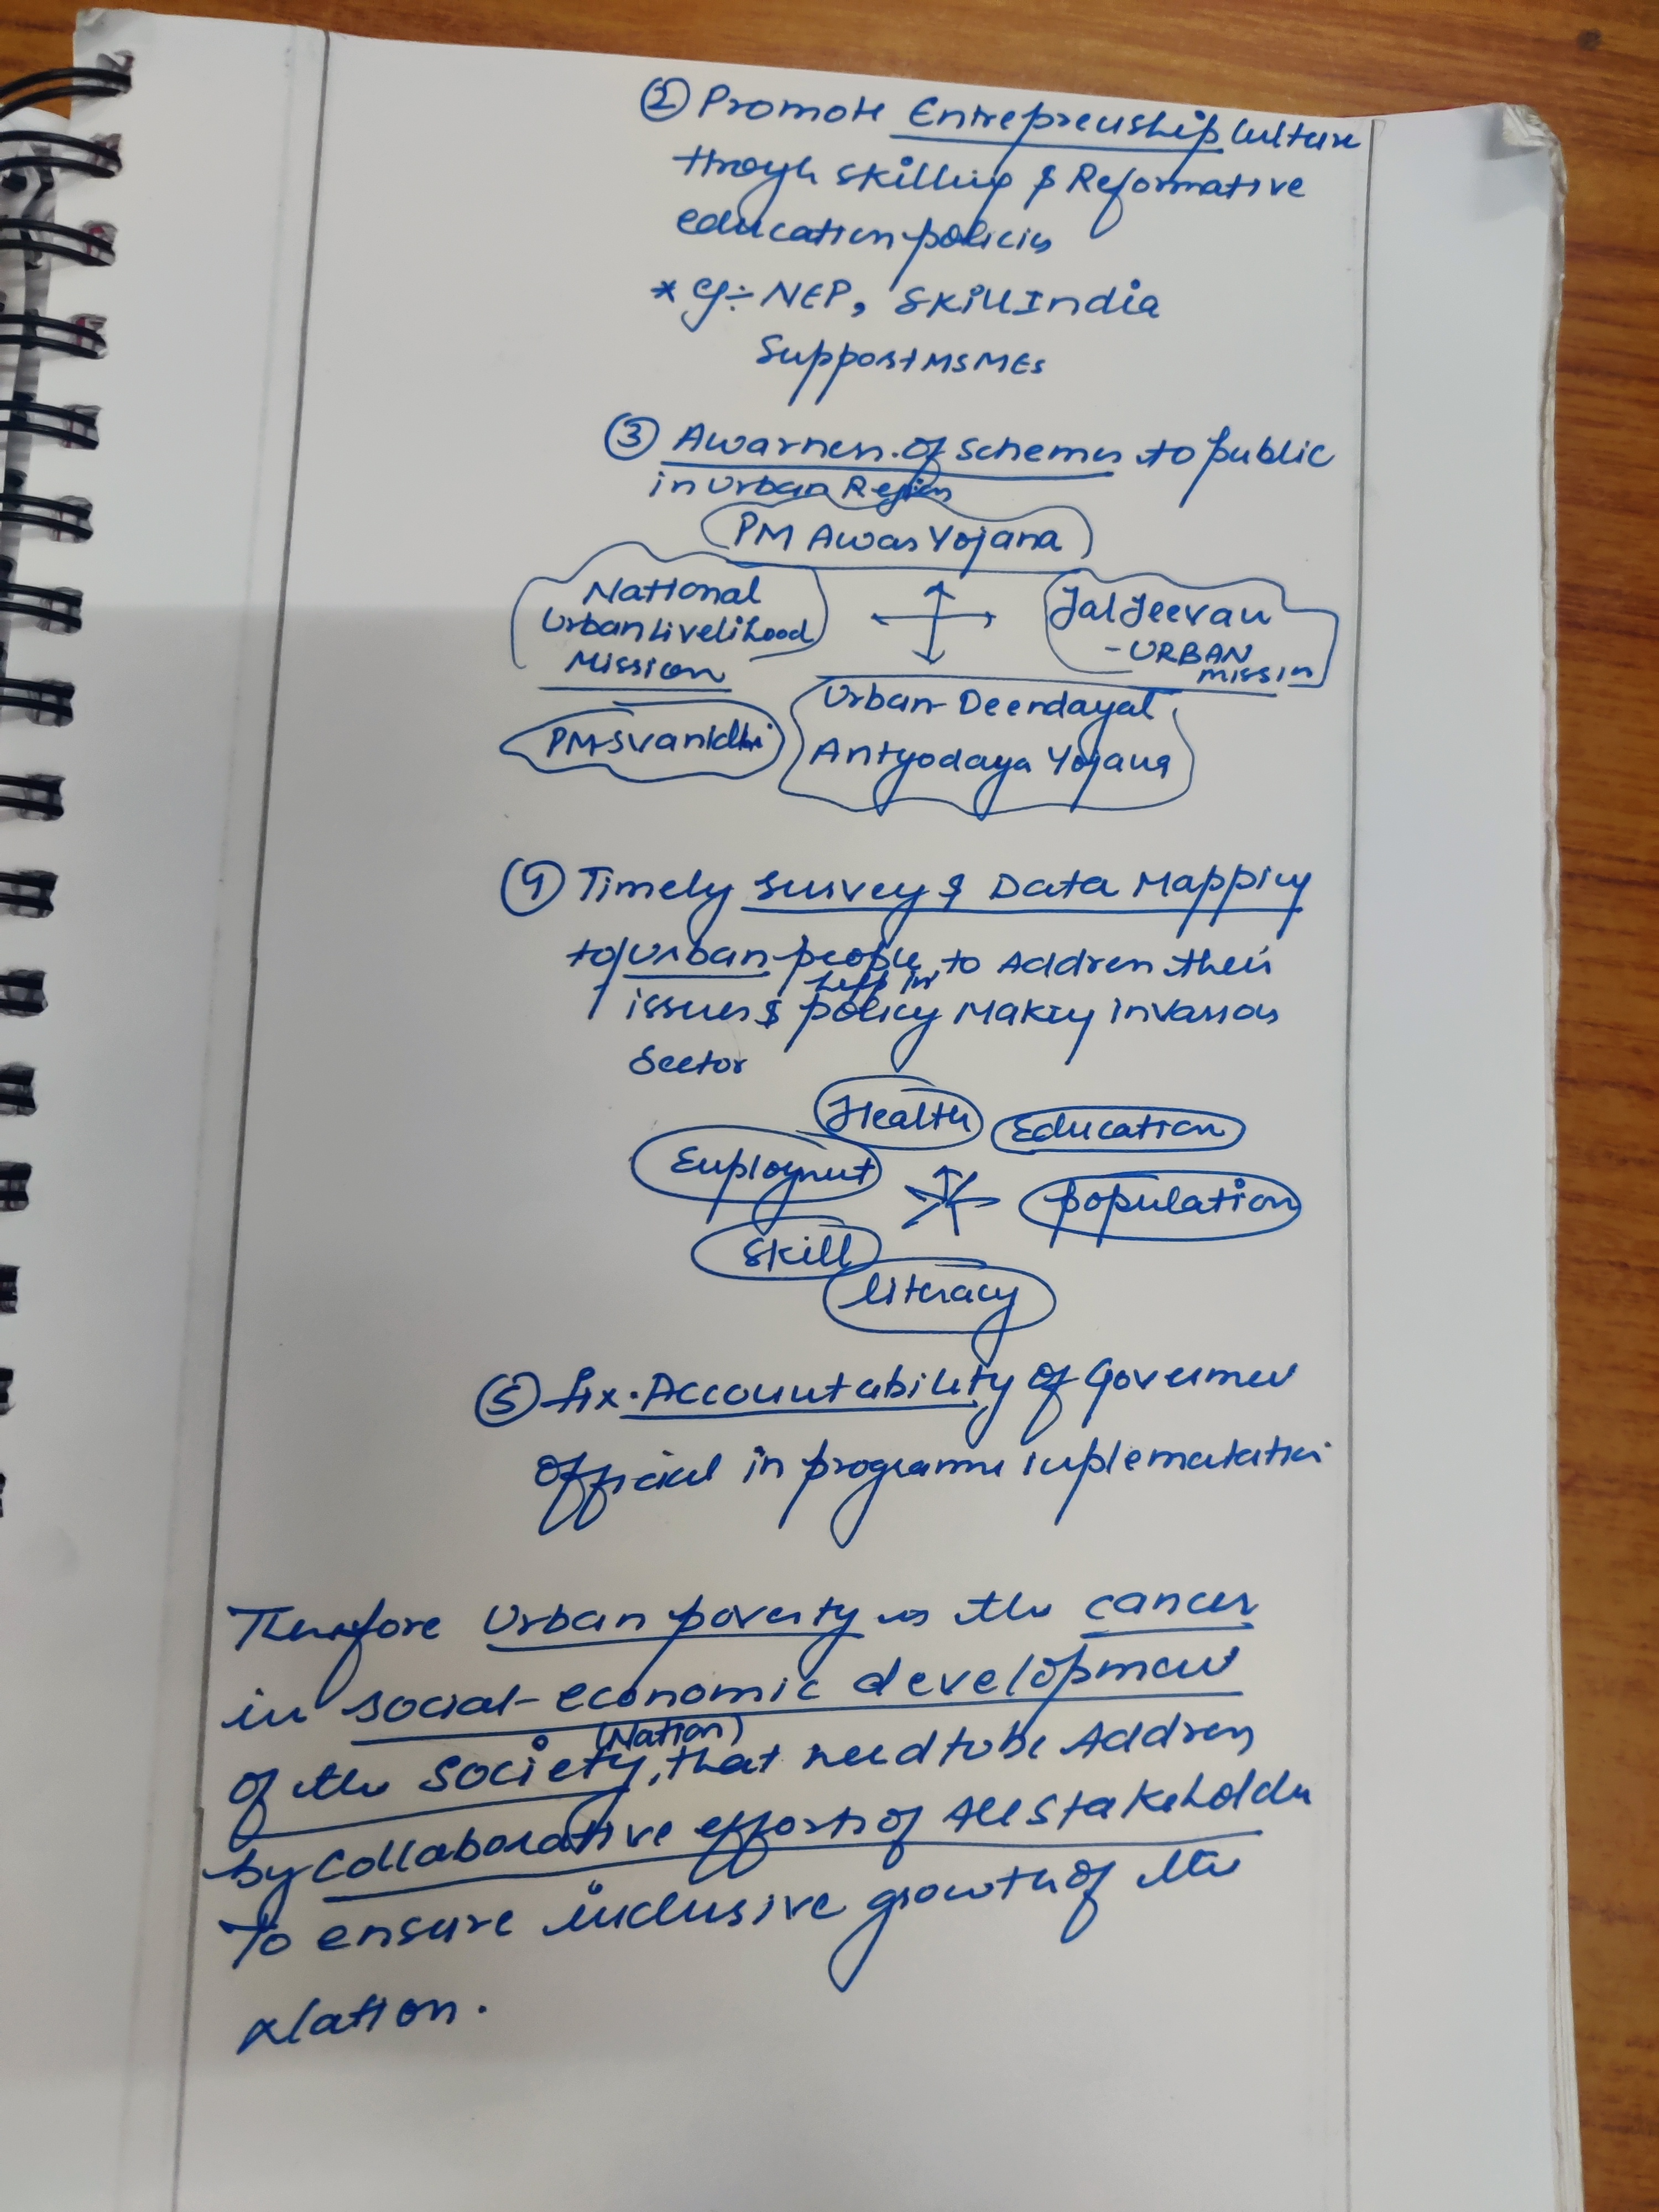 ② Promote Entrepreuship Culture
throygh skilling & Reformative
education policies
* eg:- NEP, Skill India
Support MSMEs
③ Awarness of Schemes to public
in Urban Region
PM Awas Yojana
National
Urban Livelihood
Mission
Jal Jeevan
-URBAN
missin
PM-Svanidhi
Urban Deendayal
Antyodaya Yojana
④ Timely Survey & Data Mapping
of urban people, to Address their
help in
issues & policy Making in various
Sector
Health
Education
Employment
population
Skill
literacy
⑤ fix Accountability of Government
official in programme implementation
Therefore Urban poverty is the cancer
in social-economic development
(Nation)
of the Society, that need to be Address
by collaborative efforts of All Stakeholder
To ensure inclusive growth of the
Nation.